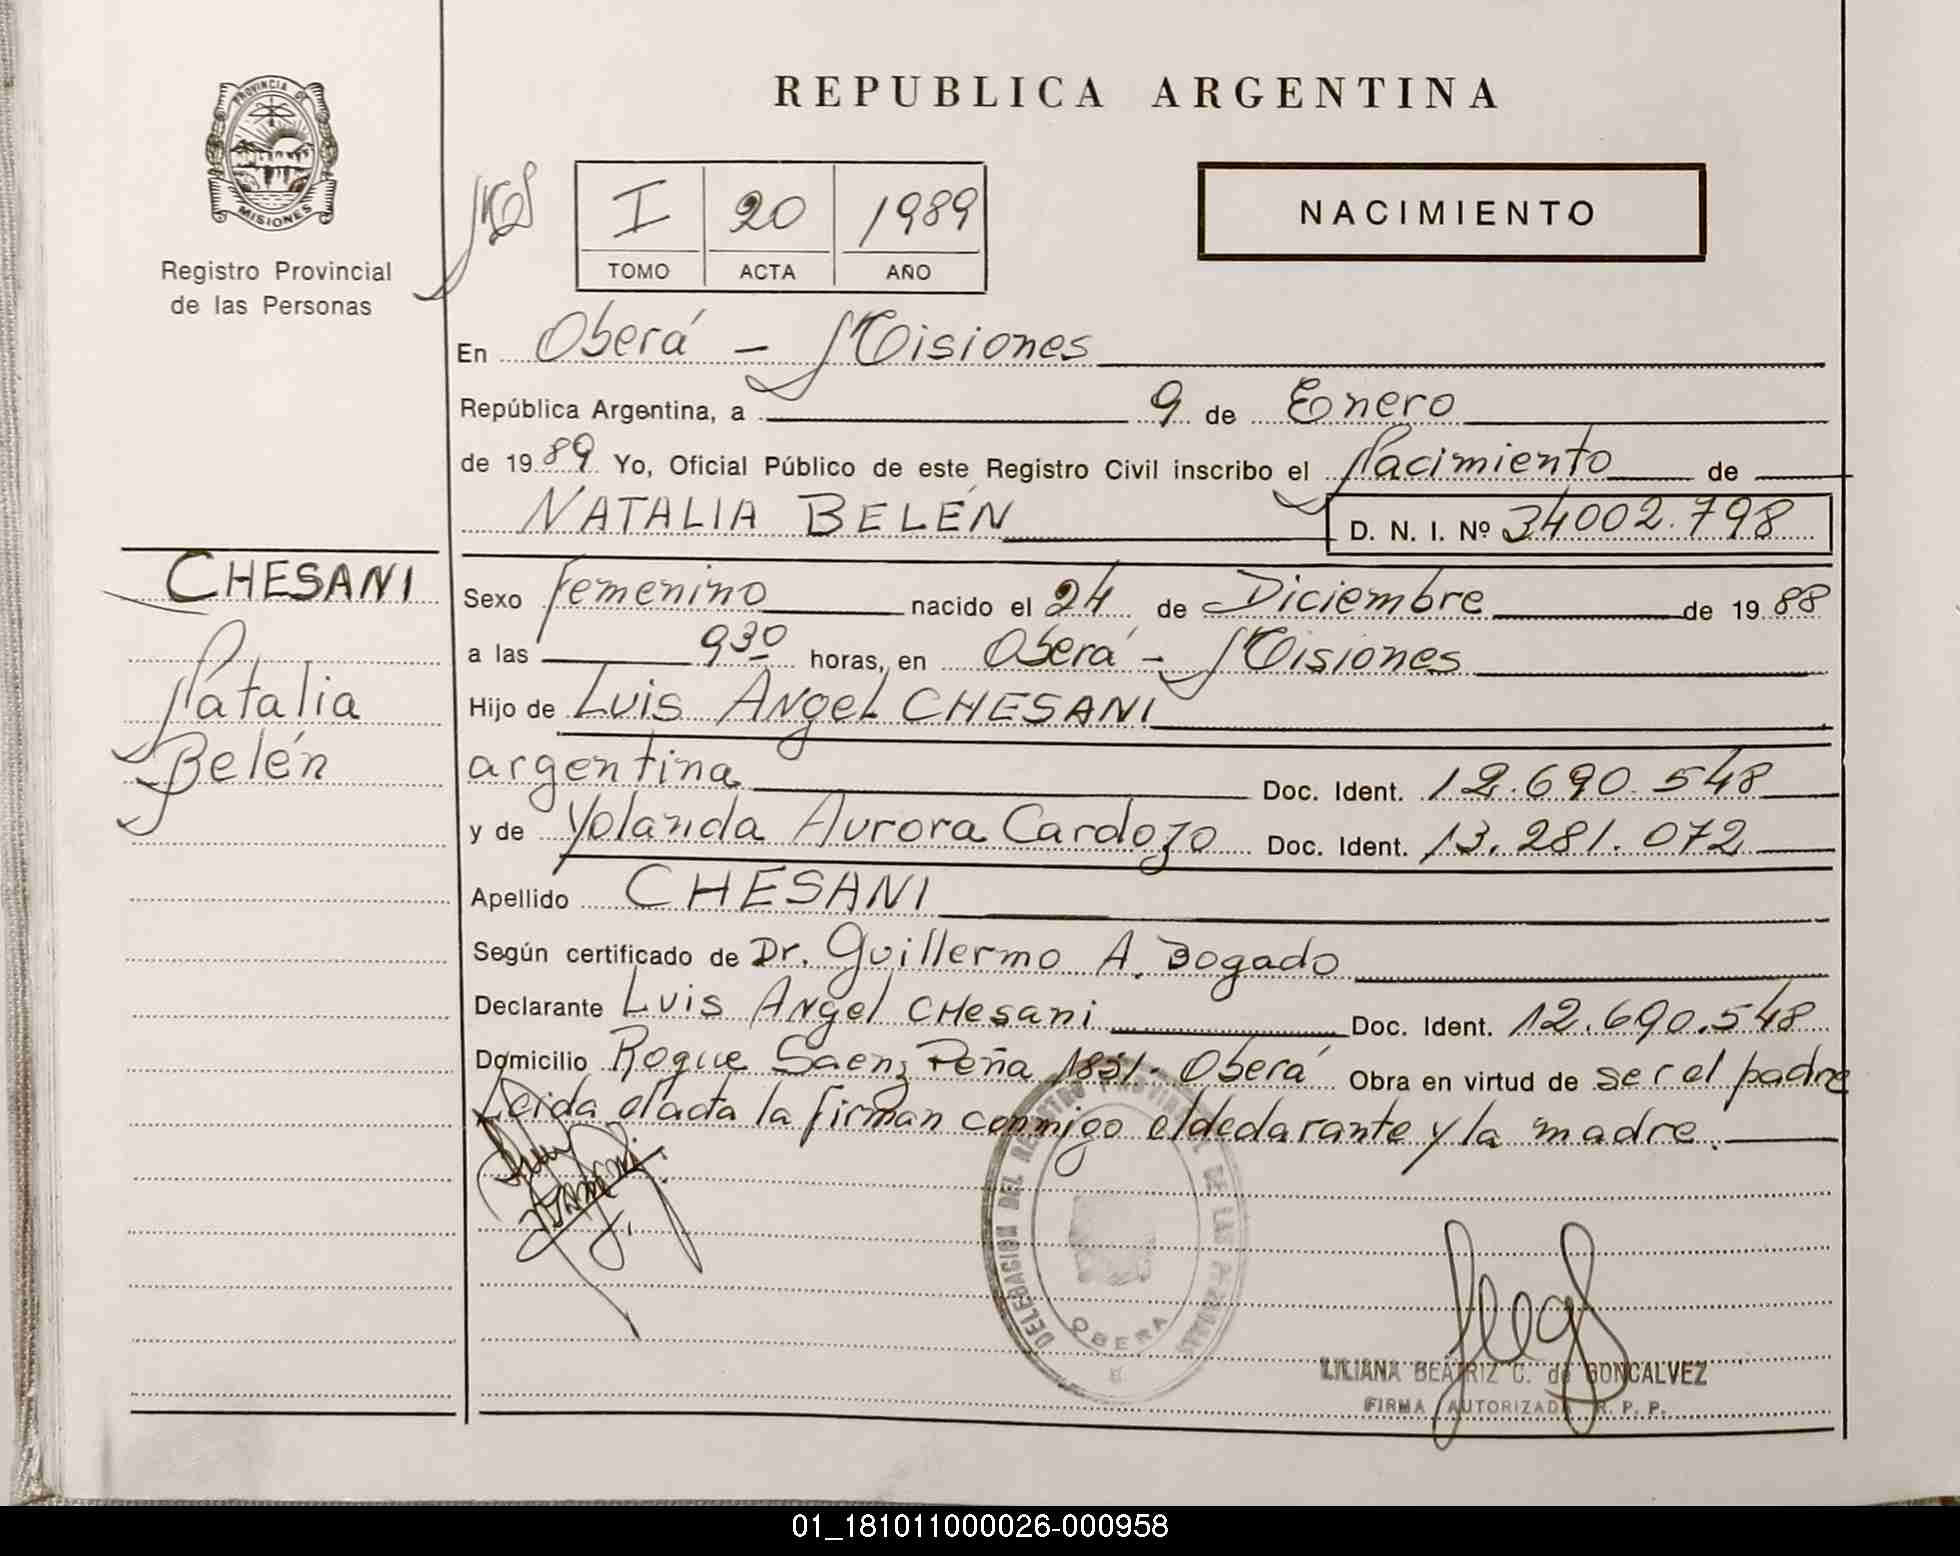 REPUBLICA ARGENTINA
PROVINCIA DE
MISIONES
Registro Provincial
de las Personas
I 20 1989
TOMO ACTA AÑO
NACIMIENTO
En Oberá - Misiones
República Argentina, a 9 de Enero
de 1989 Yo, Oficial Público de este Registro Civil inscribo el Nacimiento de
NATALIA BELÉN D. N. I. Nº 34002.798
CHESANI
Natalia
Belén
Sexo femenino nacido el 24 de Diciembre de 1988
a las 930 horas, en Oberá - Misiones
Hijo de Luis Angel CHESANI
argentina Doc. Ident. 12.690.548
y de Yolanda Aurora Cardozo Doc. Ident. 13.281.072
Apellido CHESANI
Según certificado de Dr. Guillermo A. Bogado
Declarante Luis Angel CHesani Doc. Ident. 12.690.548
Domicilio Roque Saenz Peña 1831. Oberá Obra en virtud de ser el padre
Leida el acta la firman conmigo el declarante y la madre.
DELEGACION DEL REGISTRO PROVINCIAL DE LAS PERSONAS
OBERA
LILIANA BEATRIZ C. de GONCALVEZ
FIRMA AUTORIZADA R. P. P.
01_181011000026-000958